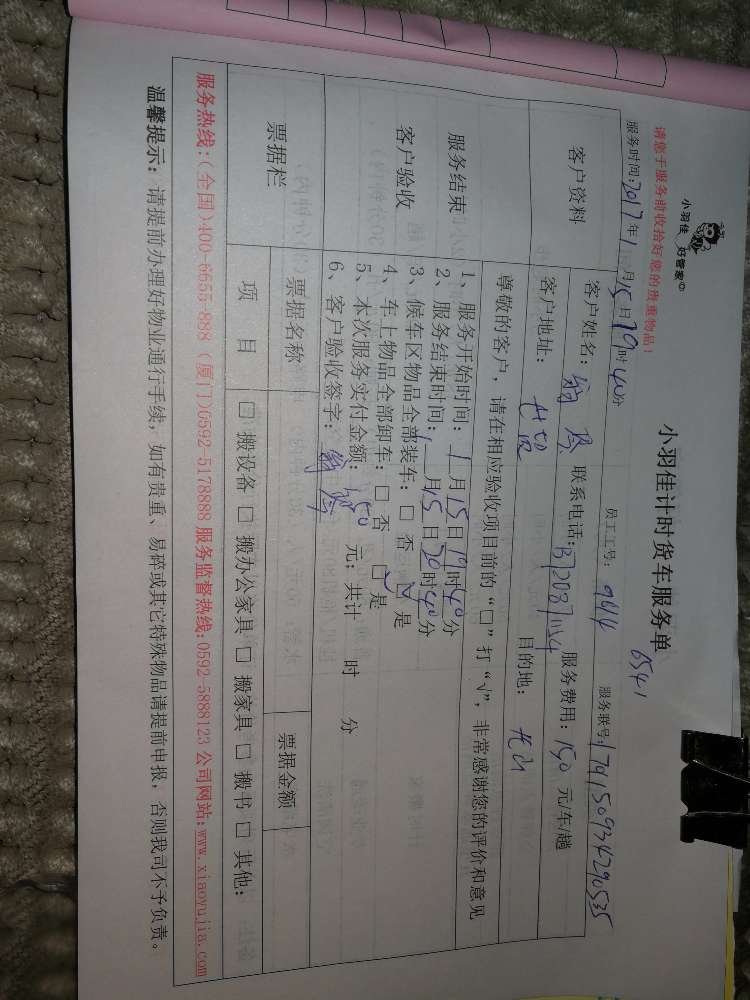 小羽佳 好管家
请您于服务前收拾好您的贵重物品！
小羽佳计时货车服务单
6541
服务时间:2017年1月15日19时40分 员工工号: 9614 服务联号:
客户资料
客户姓名: 联系电话: 服务费用: 150 元/车/趟
客户地址: 目的地:
服务结束
客户验收
尊敬的客户，请在相应验收项目前的“□”打“√”，非常感谢您的评价和意见
1、服务开始时间: 1月15日19时40分
2、服务结束时间: 1月15日20时40分
3、候车区物品全部装车: □ 否 ☑ 是
4、车上物品全部卸车: □ 否 ☑ 是
5、本次服务实付金额: 150 元; 共计 时 分
6、客户验收签字:
票据栏
票据名称 票据金额
项 目 □ 搬设备 □ 搬办公家具 □ 搬家具 □ 搬书 □ 其他:
服务热线:(全国)400-6655-888 (厦门)0592-5178888 服务监督热线:0592-5888123 公司网站:www.xiaoyujia.com
温馨提示: 请提前办理好物业通行手续，如有贵重、易碎或其它特殊物品请提前申报，否则我司不予负责。